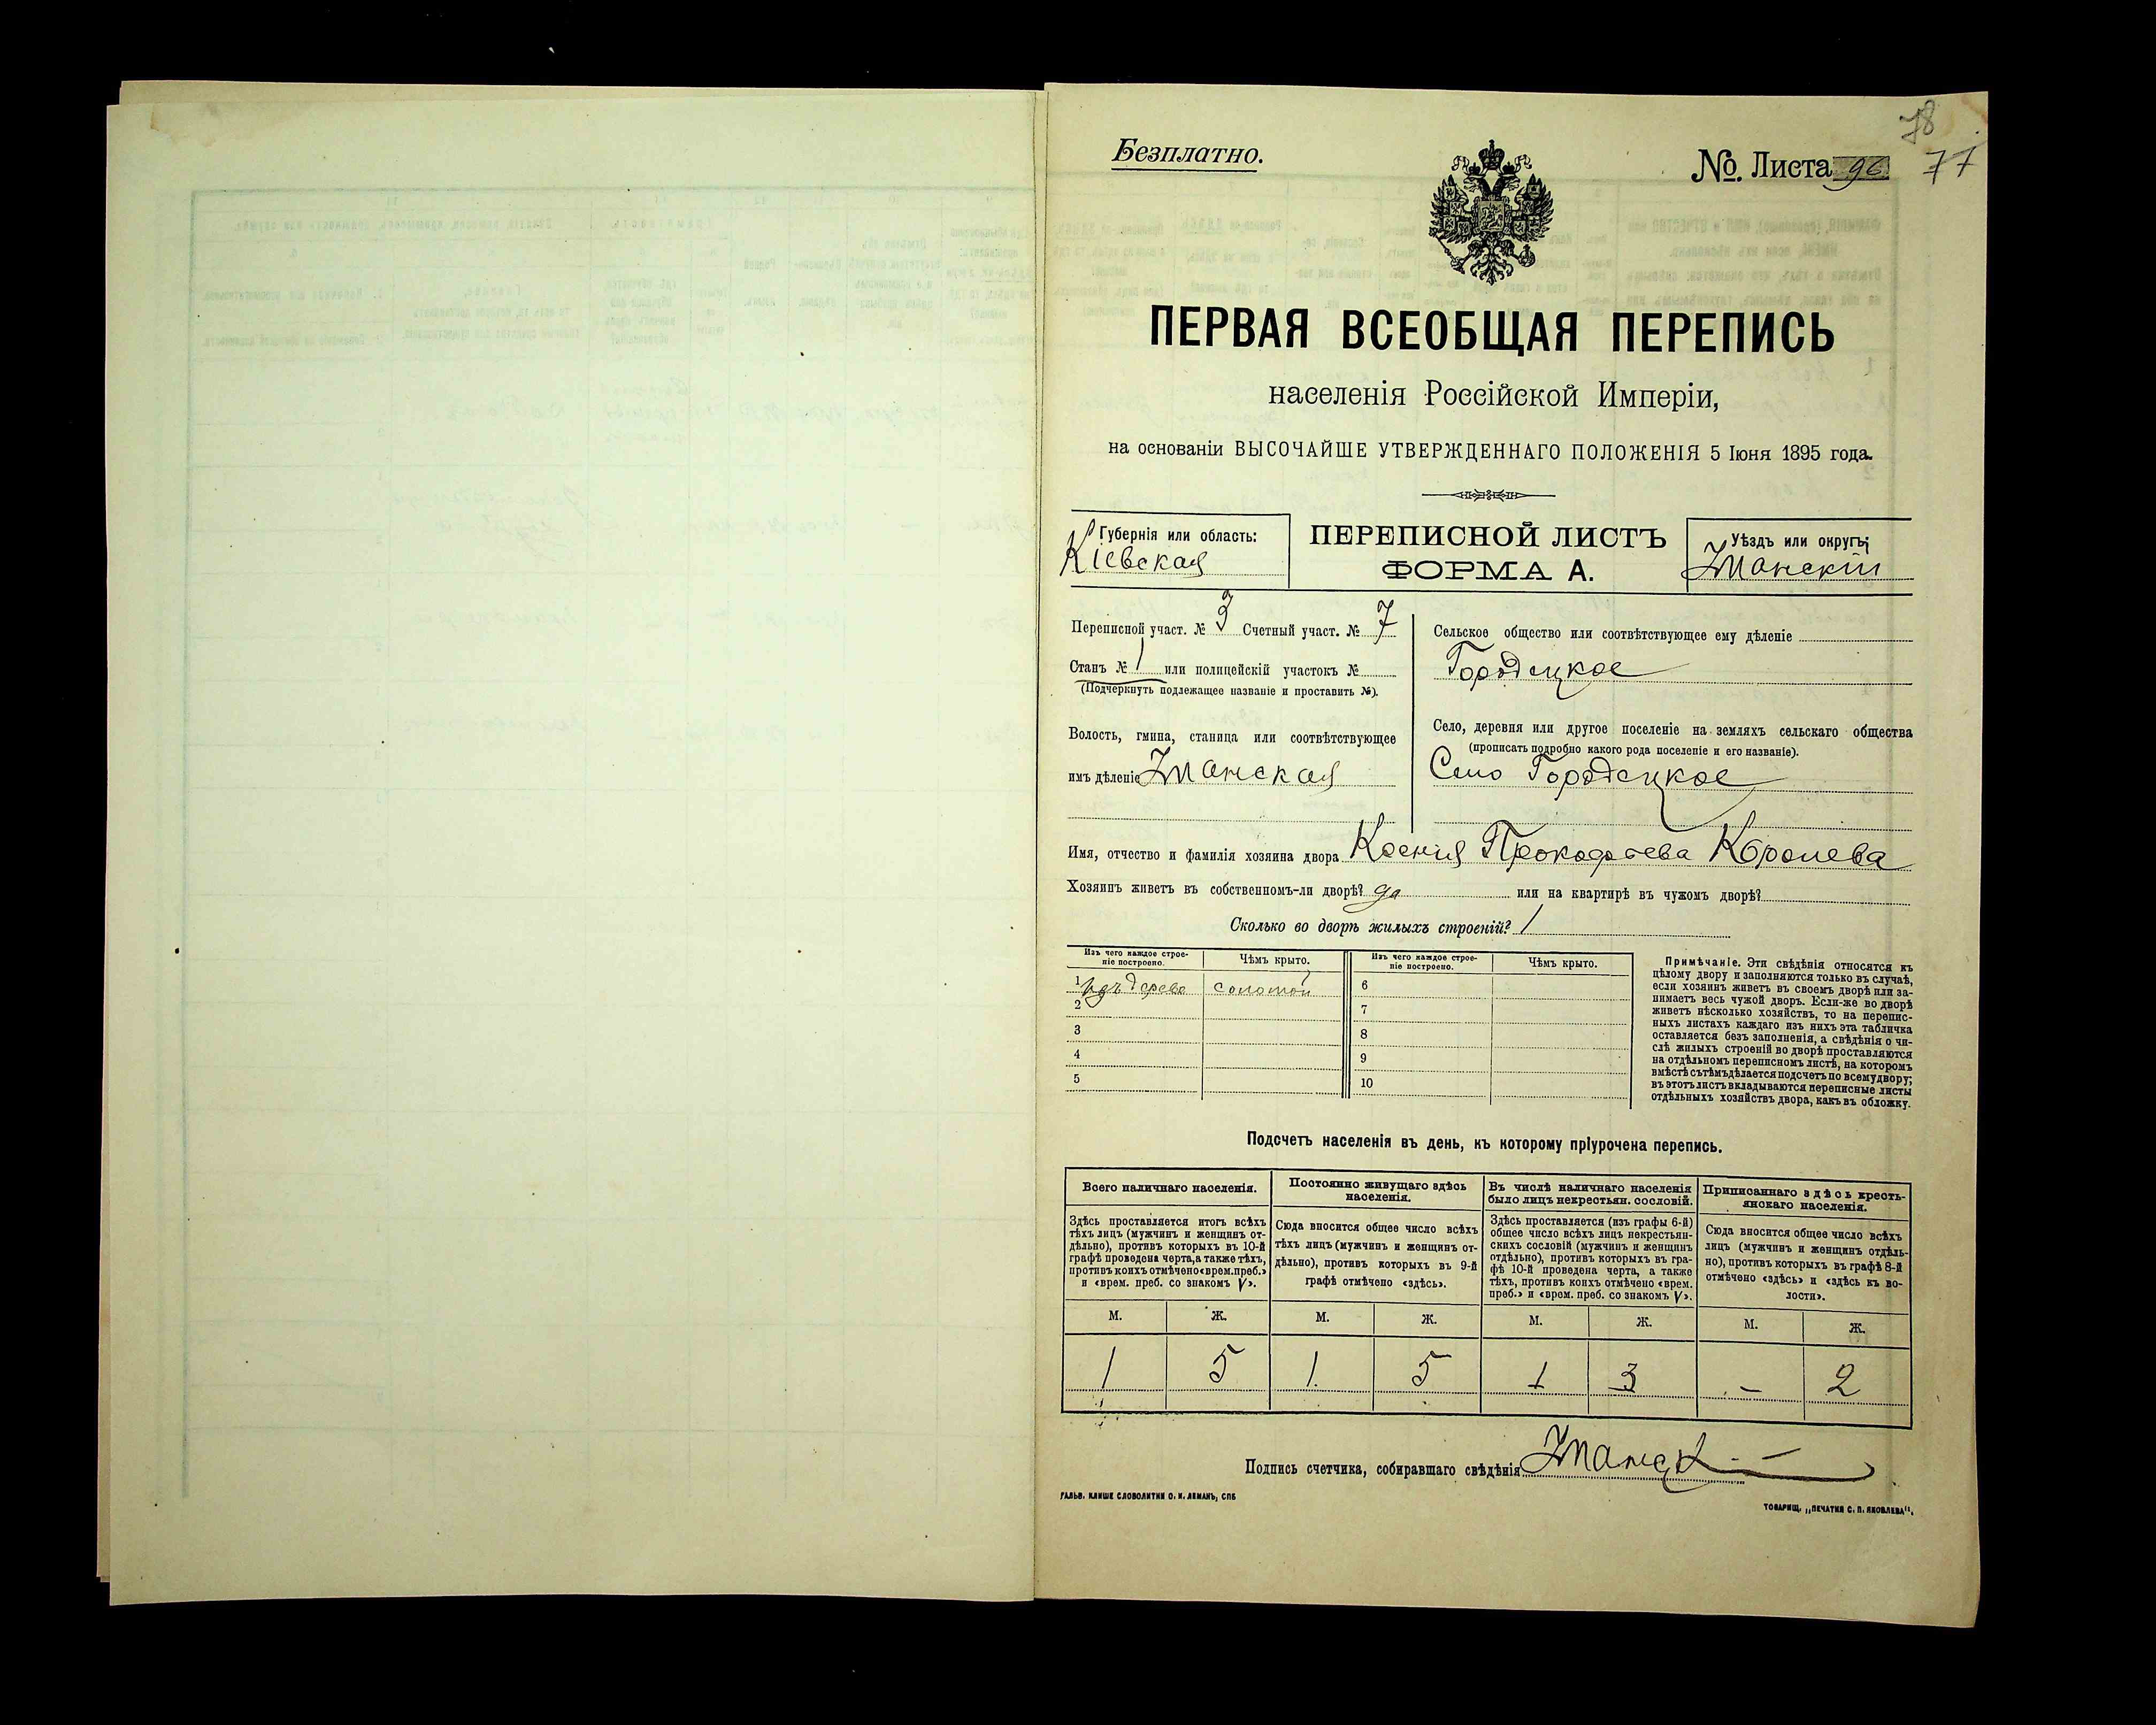 78
Безплатно.
№. Листа 96 77
ПЕРВАЯ ВСЕОБЩАЯ ПЕРЕПИСЬ
населенія Россійской Имперіи,
на основаніи ВЫСОЧАЙШЕ УТВЕРЖДЕННАГО ПОЛОЖЕНІЯ 5 Іюня 1895 года.
Губернія или область:
Кіевская
ПЕРЕПИСНОЙ ЛИСТЪ
ФОРМА А.
Уѣздъ или округъ:
Уманскій
Переписной участ. № 3 Счетный участ. № 7
Станъ № 1 или полицейскій участокъ №
(Подчеркнуть подлежащее названіе и проставить №).
Волость, гмина, станица или соотвѣтствующее
имъ дѣленіе Уманская
Сельское общество или соотвѣтствующее ему дѣленіе
Городецкое
Село, деревня или другое поселеніе на земляхъ сельскаго общества
(прописать подробно какого рода поселеніе и его названіе).
Село Городецкое
Имя, отчество и фамилія хозяина двора Ксенія Прокофьева Королева
Хозяинъ живетъ въ собственномъ-ли дворѣ? да или на квартирѣ въ чужомъ дворѣ?
Сколько во дворѣ жилыхъ строеній? 1
Изъ чего каждое строе-
ніе построено.
Чѣмъ крыто.
Изъ чего каждое строе-
ніе построено.
Чѣмъ крыто.
1 изъ дерева соломой
2
3
4
5
6
7
8
9
10
Примѣчаніе. Эти свѣдѣнія относятся къ
цѣлому двору и заполняются только въ случаѣ,
если хозяинъ живетъ въ своемъ дворѣ или за-
нимаетъ весь чужой дворъ. Если-же во дворѣ
живетъ нѣсколько хозяйствъ, то на перепис-
ныхъ листахъ каждаго изъ нихъ эта табличка
оставляется безъ заполненія, а свѣдѣнія о чи-
слѣ жилыхъ строеній во дворѣ проставляются
на отдѣльномъ переписномъ листѣ, на которомъ
вмѣстѣ съ тѣмъ дѣлается подсчетъ по всему двору;
въ этотъ листъ вкладываются переписные листы
отдѣльныхъ хозяйствъ двора, какъ въ обложку.
Подсчетъ населенія въ день, къ которому пріурочена перепись.
Всего наличнаго населенія.
Здѣсь проставляется итогъ всѣхъ
тѣхъ лицъ (мужчинъ и женщинъ от-
дѣльно), противъ которыхъ въ 10-й
графѣ проведена черта, а также тѣхъ,
противъ коихъ отмѣчено «врем. преб.»
и «врем. преб. со знакомъ V».
М. Ж.
1 5
Постоянно живущаго здѣсь
населенія.
Сюда вносится общее число всѣхъ
тѣхъ лицъ (мужчинъ и женщинъ от-
дѣльно), противъ которыхъ въ 9-й
графѣ отмѣчено «здѣсь».
М. Ж.
1 5
Въ числѣ наличнаго населенія
было лицъ некрестьян. сословій.
Здѣсь проставляется (изъ графы 6-й)
общее число всѣхъ лицъ некрестьян-
скихъ сословій (мужчинъ и женщинъ
отдѣльно), противъ которыхъ въ гра-
фѣ 10-й проведена черта, а также
тѣхъ, противъ коихъ отмѣчено «врем.
преб.» и «врем. преб. со знакомъ V».
М. Ж.
1 3
Приписаннаго здѣсь кресть-
янскаго населенія.
Сюда вносится общее число всѣхъ
лицъ (мужчинъ и женщинъ отдѣль-
но), противъ которыхъ въ графѣ 8-й
отмѣчено «здѣсь» и «здѣсь къ во-
лости».
М. Ж.
– 2
Подпись счетчика, собиравшаго свѣдѣнія
ГАЛЬВ. КЛИШЕ СЛОВОЛИТНИ О. И. ЛЕМАНЪ, СПБ
ТОВАРИЩ. „ПЕЧАТНЯ С. П. ЯКОВЛЕВА".